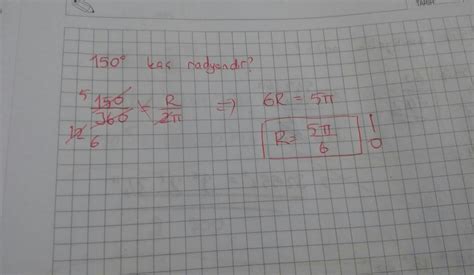 TARİH
150° kaç radyandır?
5 150/360 = R/2π ⇒ 6R = 5π
12 6
R = 5π/6 !
0